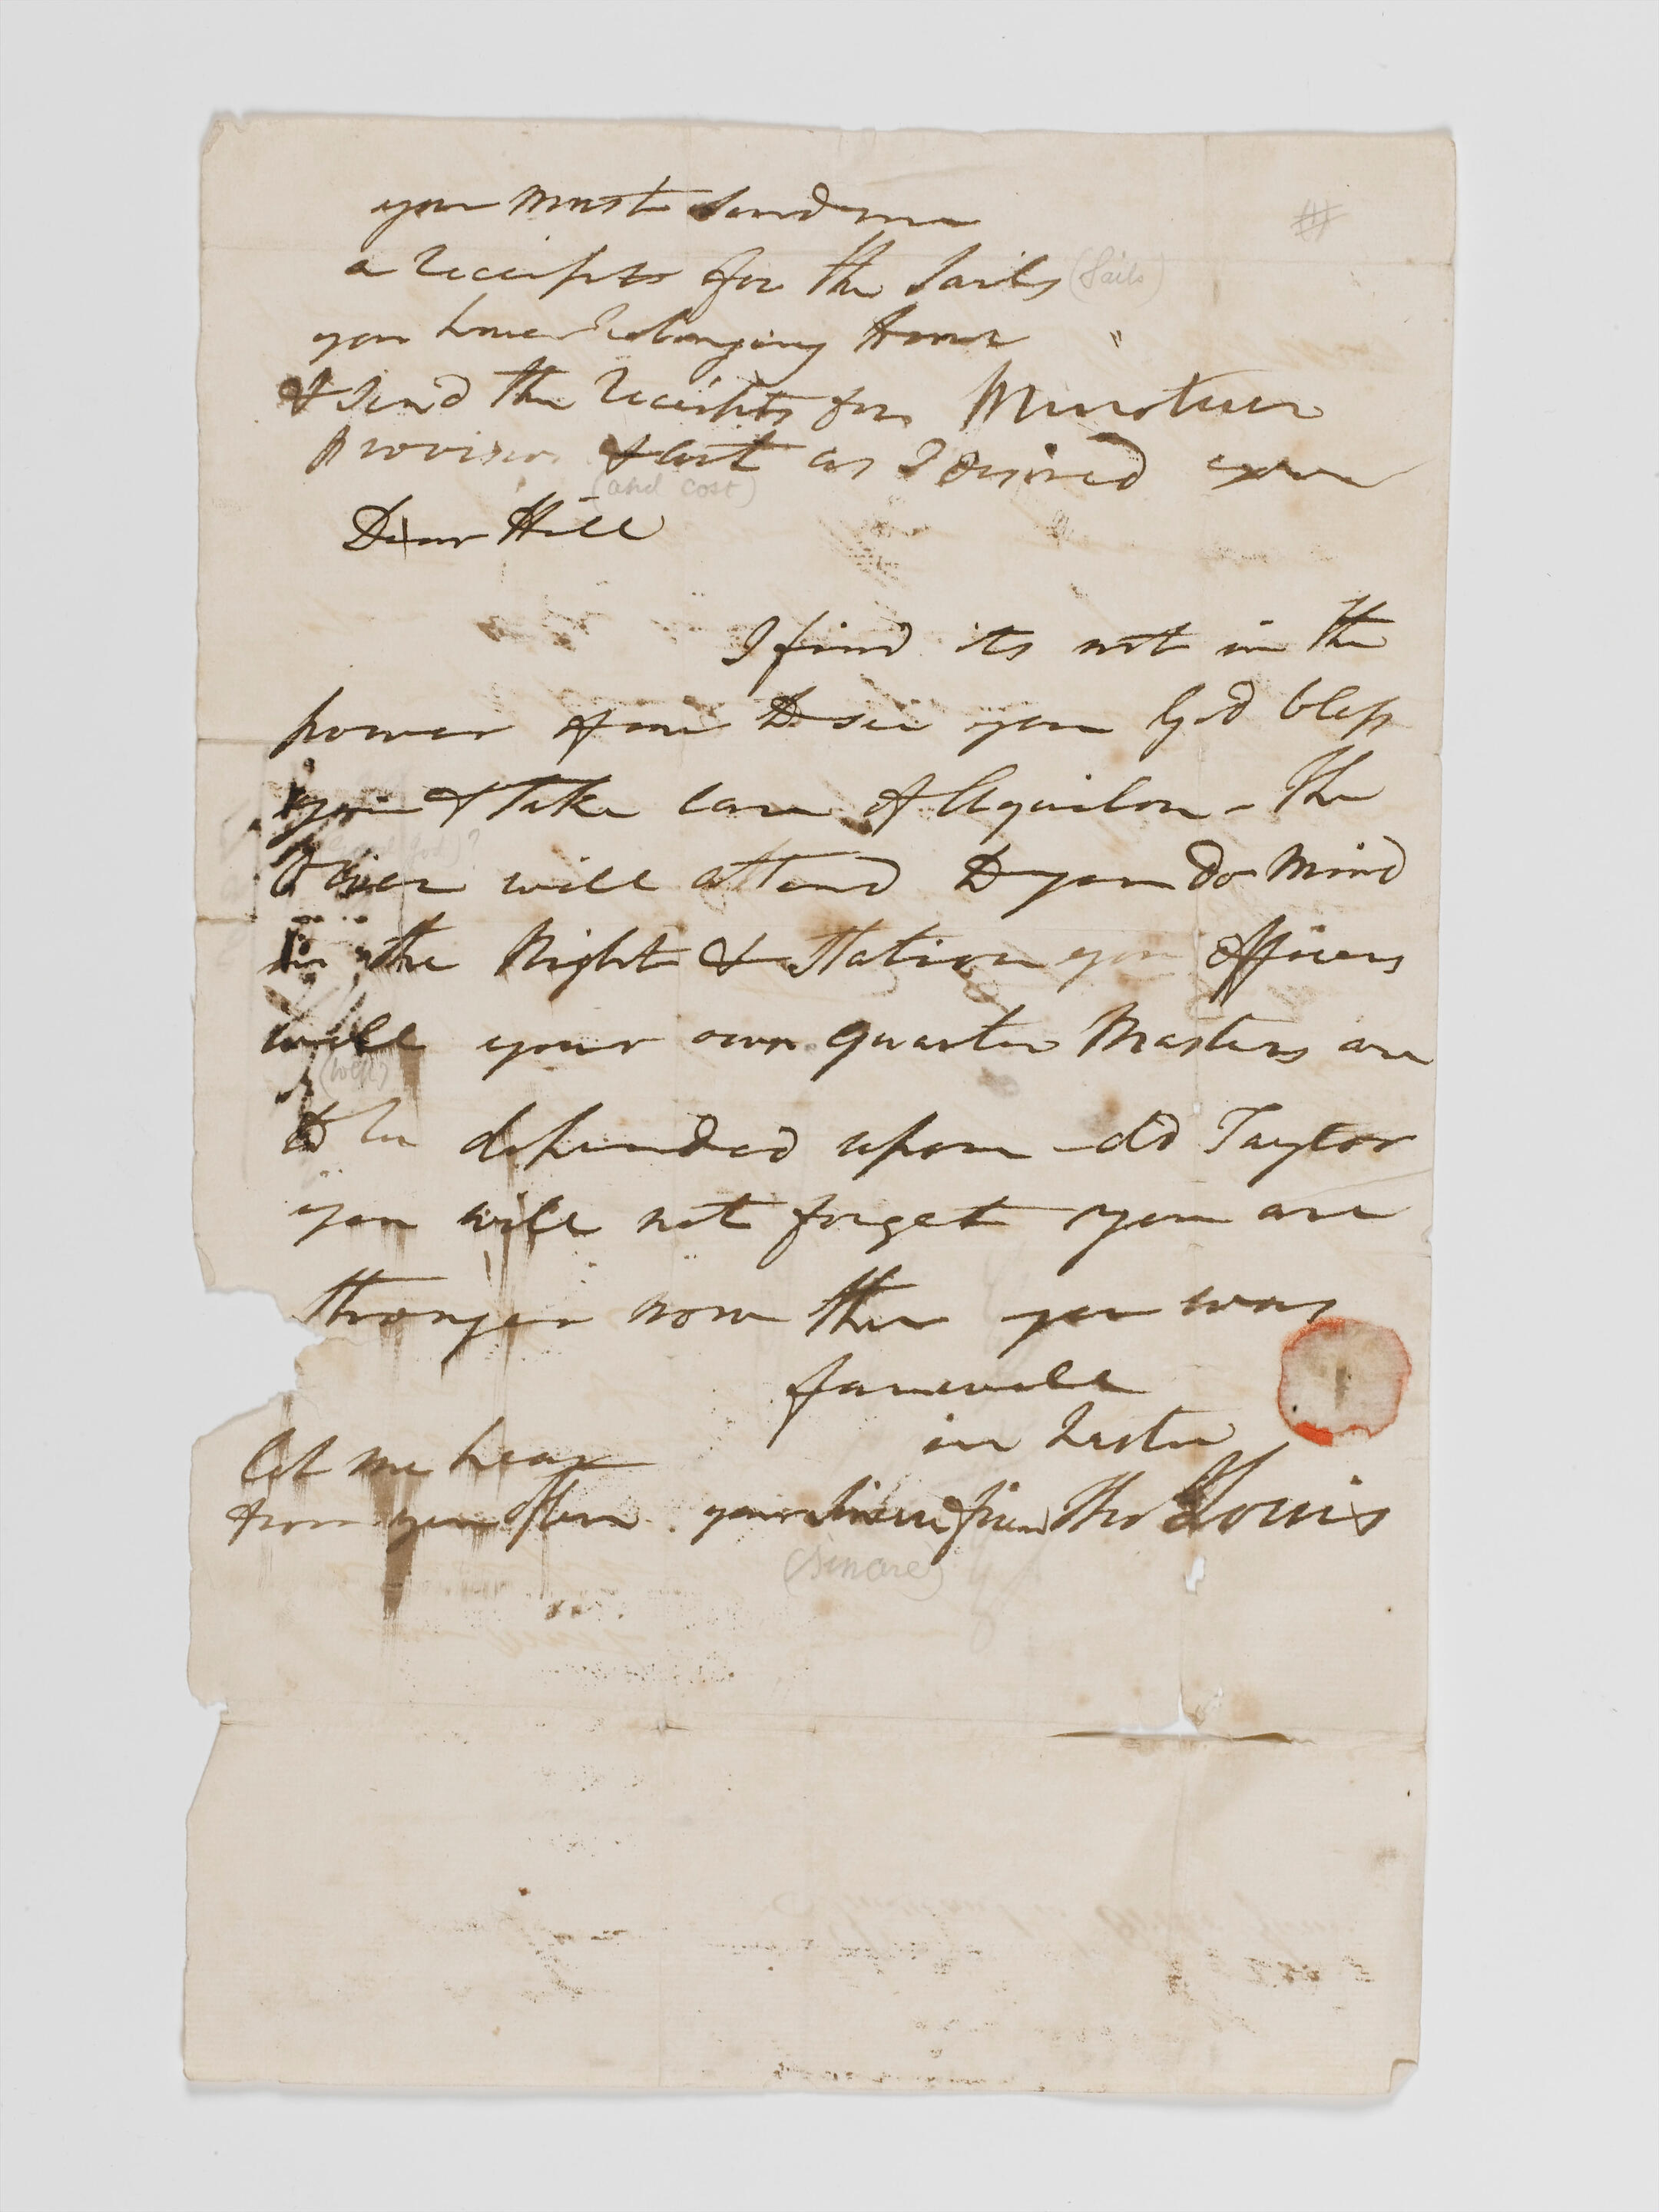 you must send me
a receipts for the Sails (Sails)
you have belonging to me
& Send the receipts for Minotaur
Provision & cost as I desired
(and cost)
Dear Hill
I find its not in the
power of me to see you God bless
you & take care of Aquilon - the
will attend to you do mind
in the Night & station you officers
well your own quarter Masters are
(well)
to be depended upon old Taylor
you will not forget you are
stronger now then you was
farewell
in haste
let me hear
from you often your sincere friend Tho Louis
(sincere)